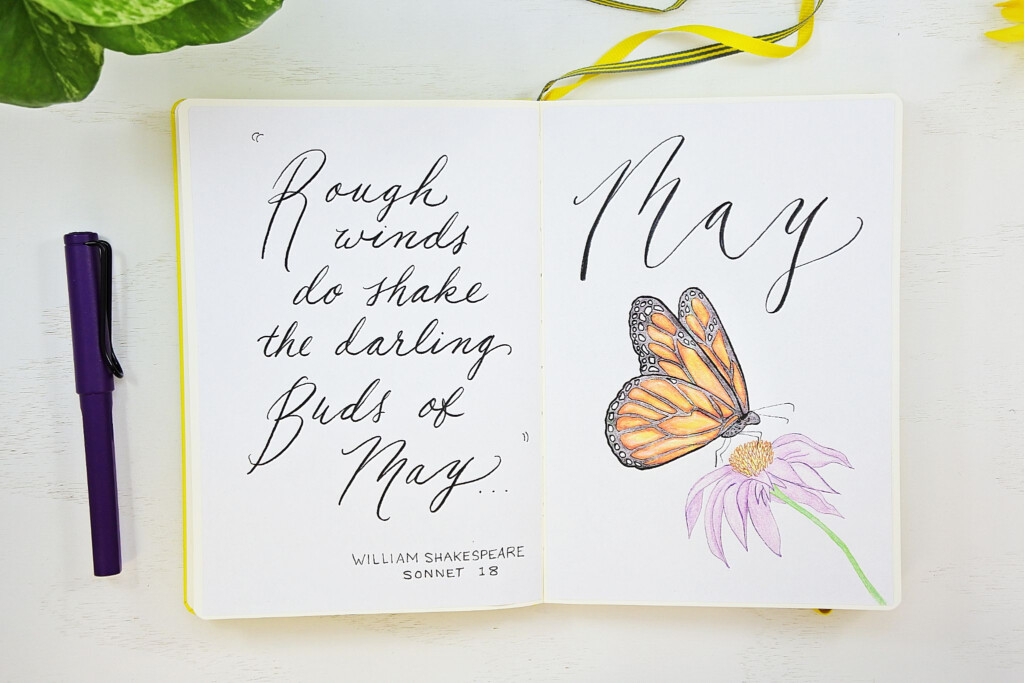 "Rough
winds
do shake
the darling
Buds of
May..."
WILLIAM SHAKESPEARE
SONNET 18
May